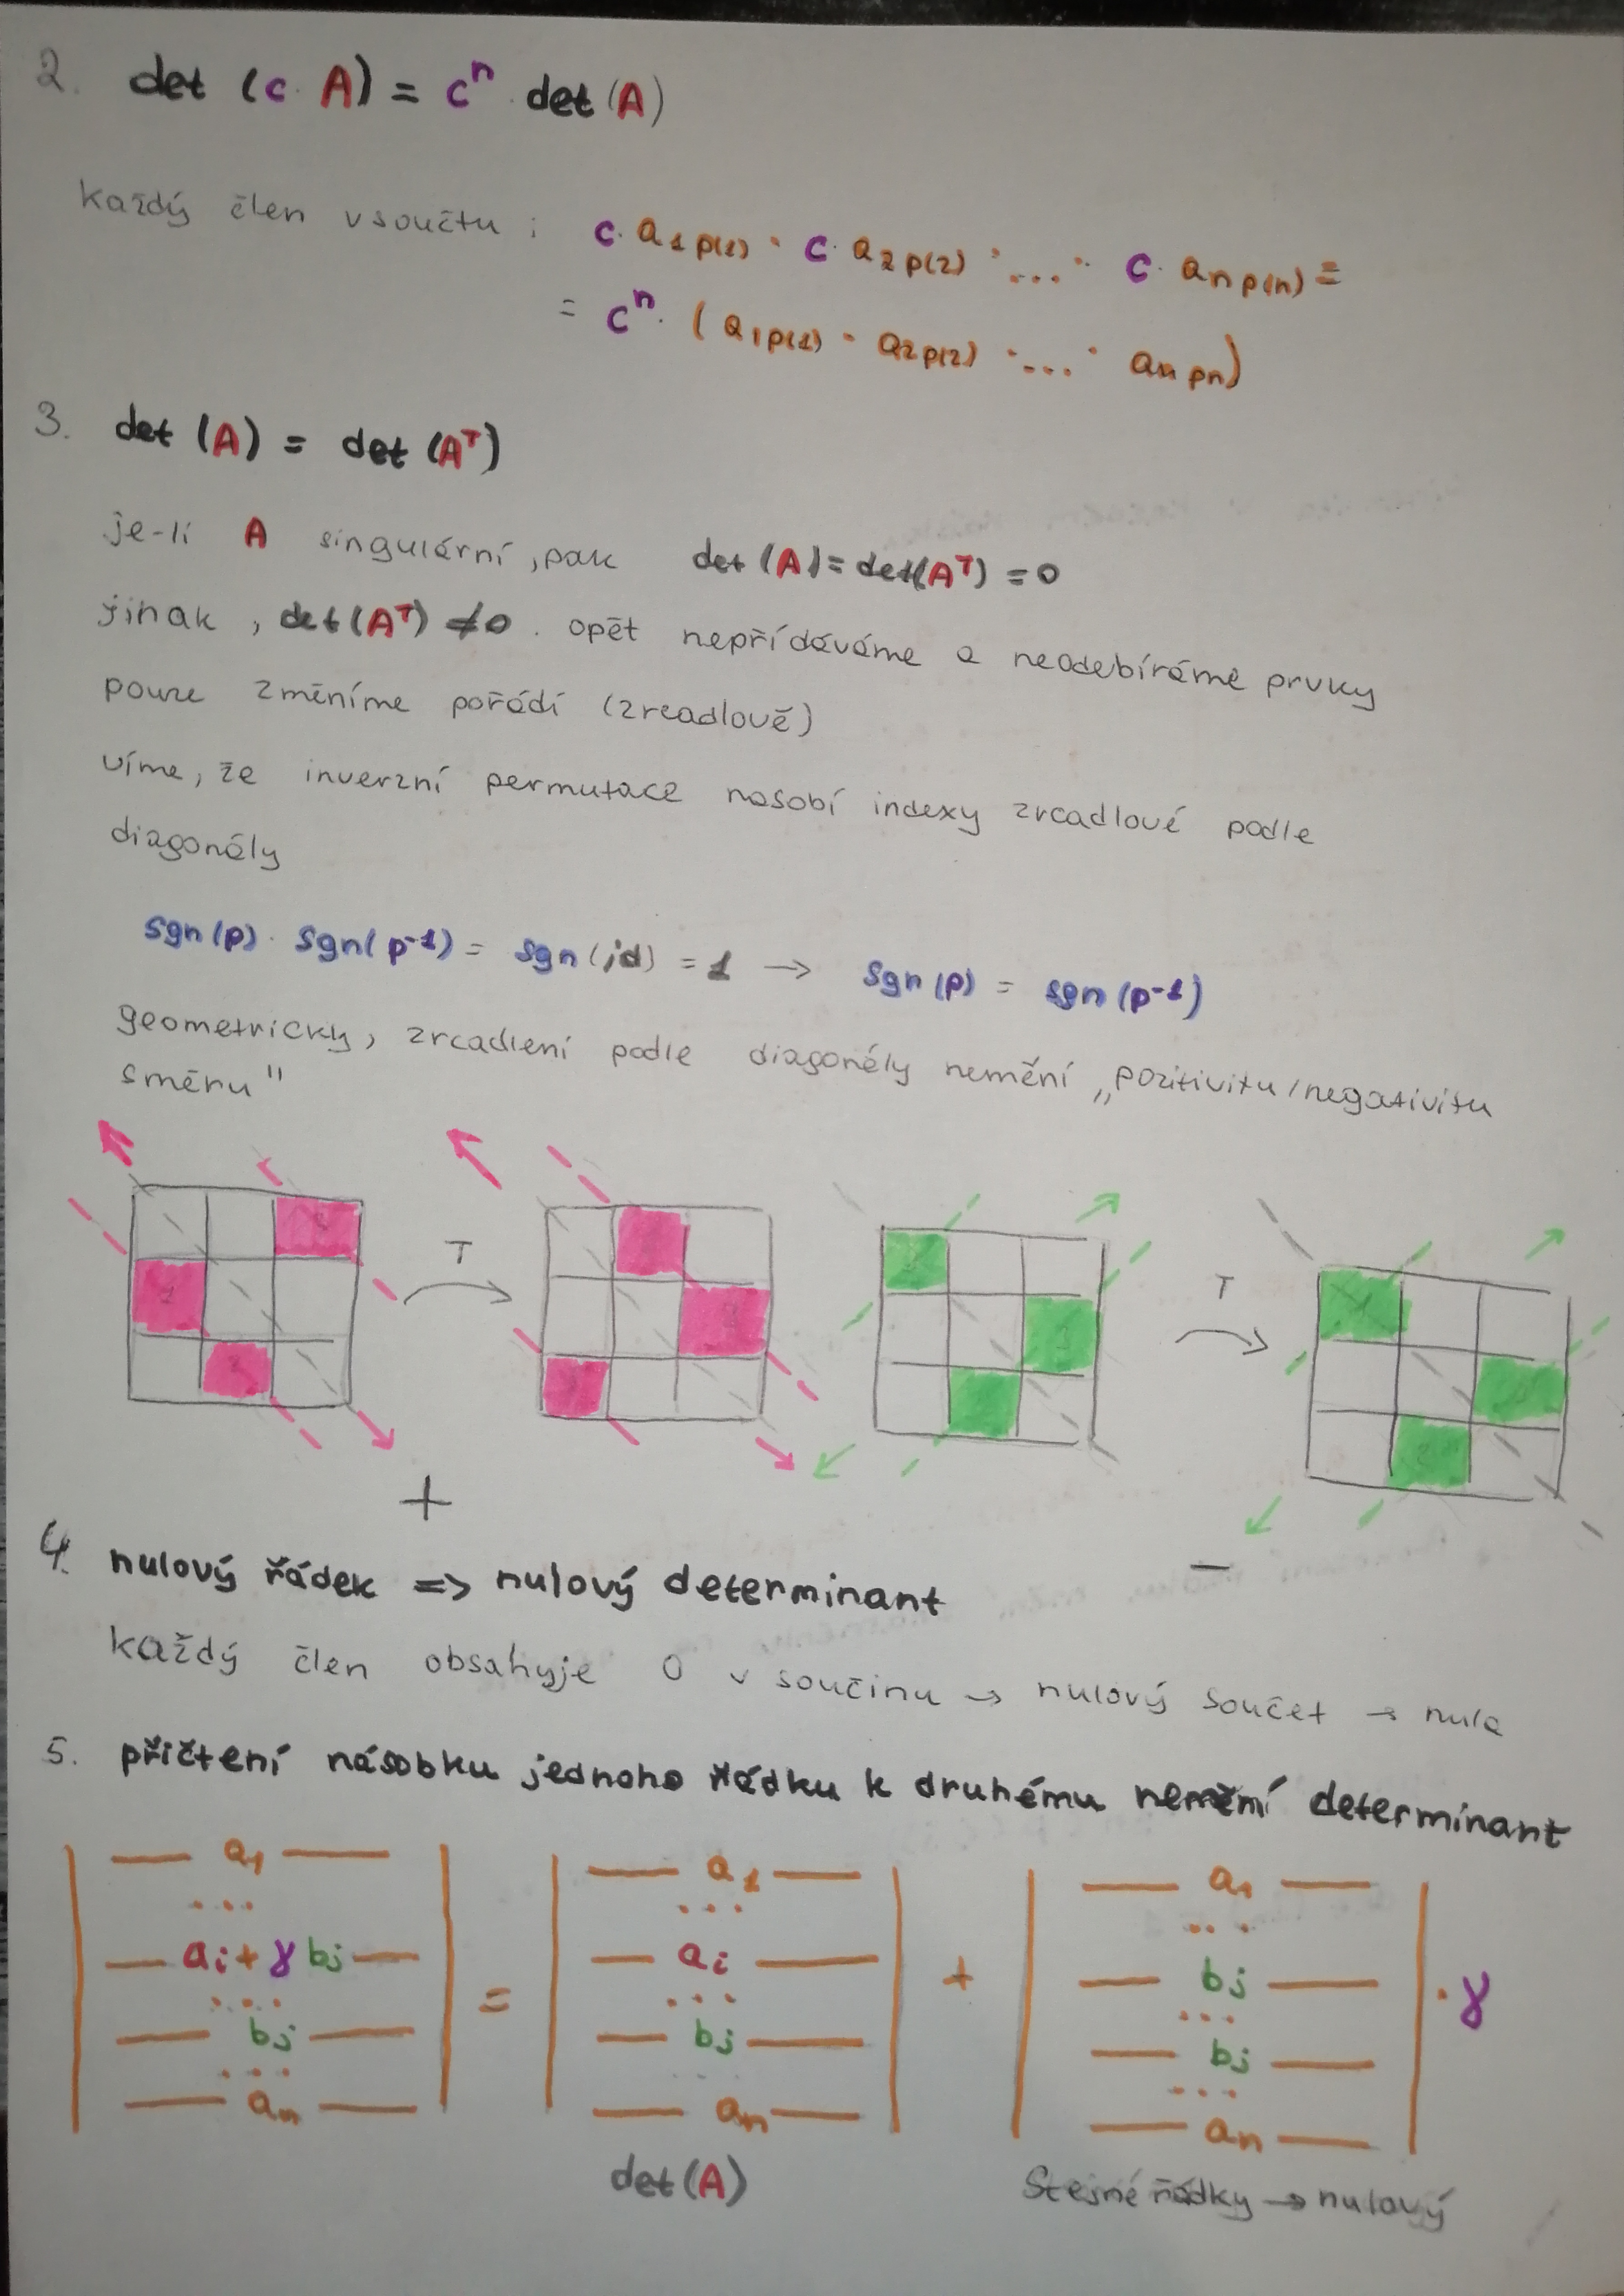 2. det (c·A) = cⁿ·det(A)
každý člen v součtu : c·a₁p(1) · c·a₂p(2) · ... · c·aₙp(n) =
= cⁿ·(a₁p(1) · a₂p(2) · ... · aₙpn)
3. det (A) = det (Aᵀ)
je-li A singulární, pak det (A) = det(Aᵀ) = 0
jinak, det(Aᵀ) ≠ 0. opět nepřídáváme a neodebíráme prvky
pouze změníme pořádí (zrcadlově)
víme, že inverzní permutace násobí indexy zrcadlové podle
diagonály
sgn(p)·sgn(p⁻¹) = sgn(id) = 1 → sgn(p) = sgn(p⁻¹)
geometricky, zrcadlení podle diagonály nemění „pozitivitu/negativitu
směru"
T
T
+
−
4. nulový řádek => nulový determinant
každý člen obsahyje 0 v součinu → nulový součet → nula
5. přičtení násobku jednoho řádku k druhému nemění determinant
a₁ a₁ a₁
... ... ...
aᵢ + γ bⱼ = aᵢ + bⱼ · γ
... ... ...
bⱼ bⱼ bⱼ
... ... ...
aₙ aₙ aₙ
det(A) Stejné řádky → nulový